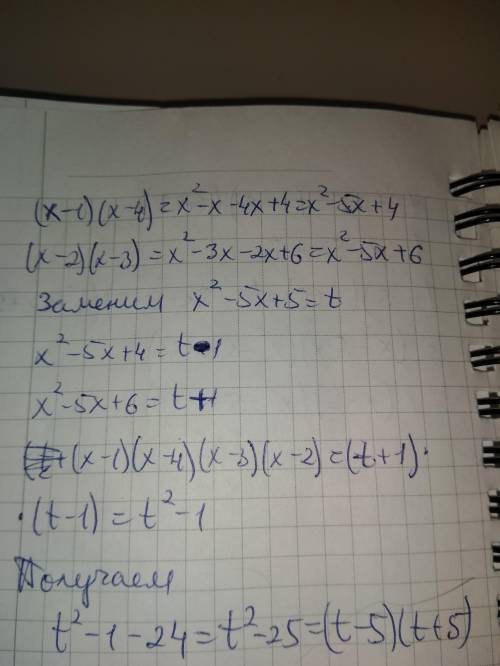 (x-1)(x-4)=x²-x-4x+4=x²-5x+4
(x-2)(x-3)=x²-3x-2x+6=x²-5x+6
Заменим x²-5x+5=t
x²-5x+4=t-1
x²-5x+6=t+1
(x-1)(x-4)(x-3)(x-2)=(t+1)·
·(t-1)=t²-1
Получаем
t²-1-24=t²-25=(t-5)(t+5)